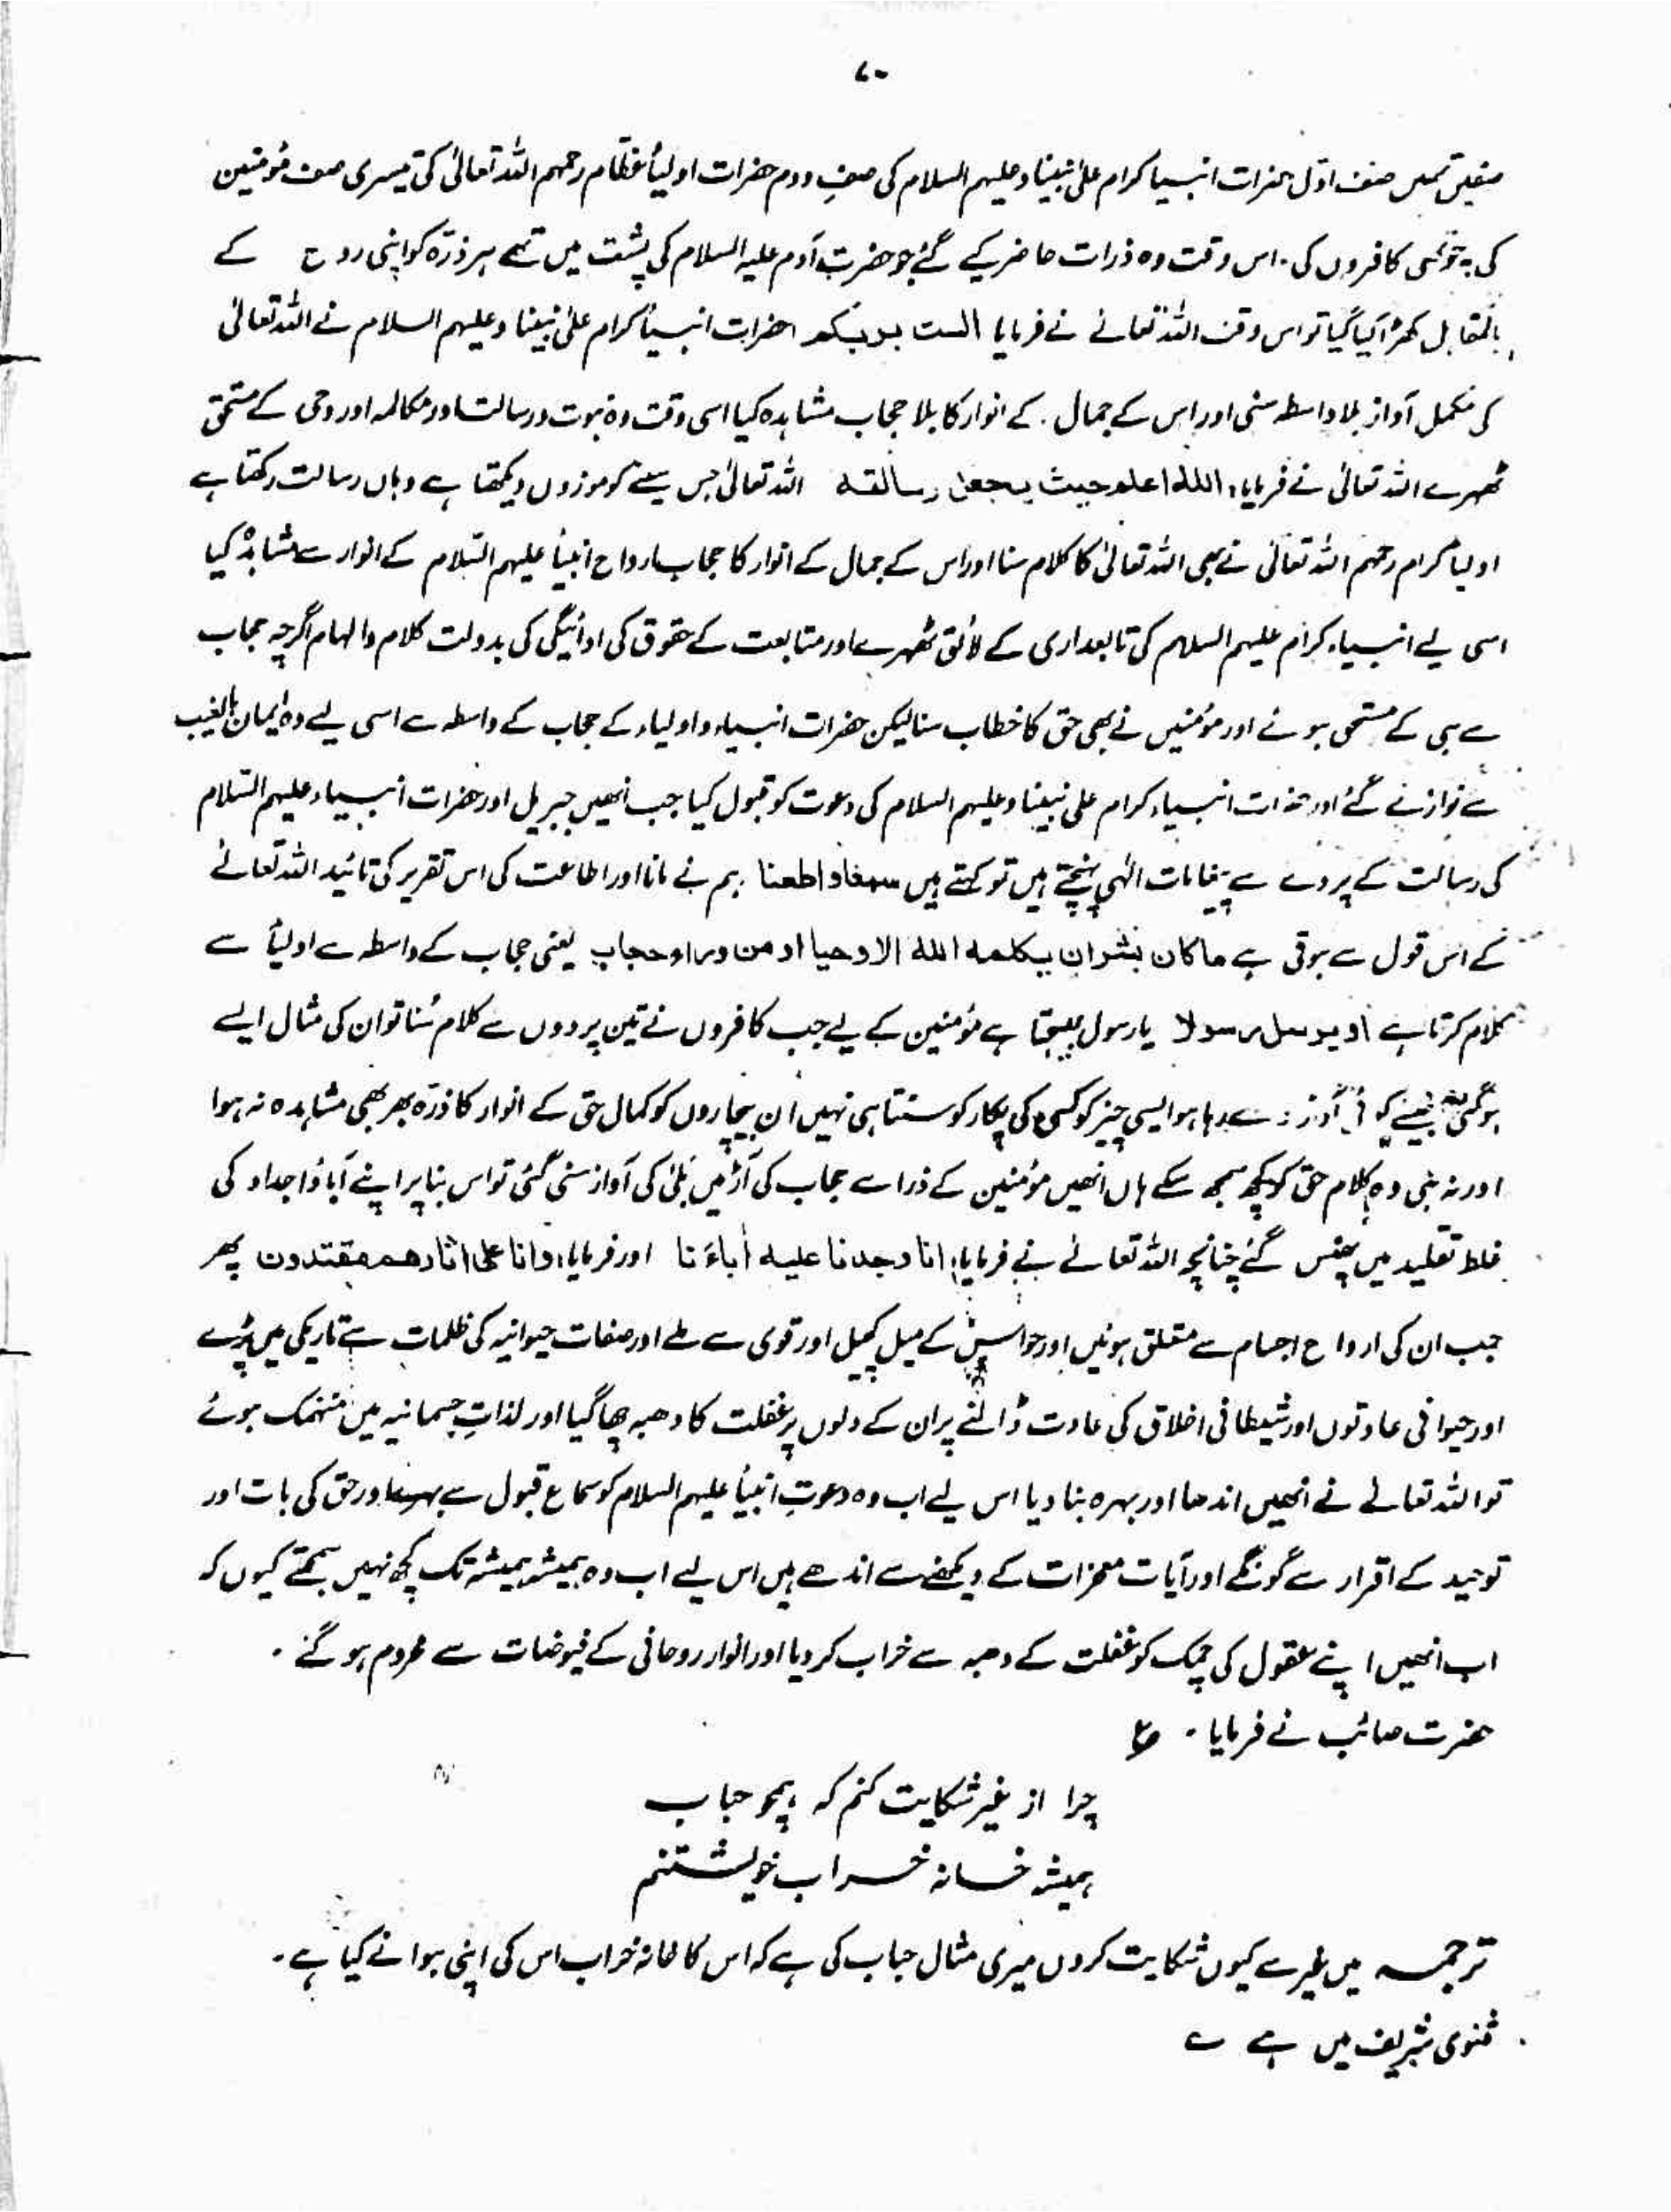 ۷۰
صفیں تھیں صف اوّل حضرات انبیا کرام علیٰ نبینا و علیہم السلام کی صفِ دوم حضرات اولیأ عظّام رحمہم اللہ تعالیٰ کی تیسری صف مُومنین
کی چوتھی کافروں کی ۔ اس وقت وہ ذرات حاضر کیے گئے جو حضرت آدم علیہ السلام کی پشت میں تھے ہر ذرّہ کو اپنی روح کے
بالمقابل کھڑا کیا گیا تو اس وقت اللہ تعالے نے فرمایا الست بربکم حضرات انبیأ کرام علیٰ نبینا و علیہم السلام نے اللہ تعالیٰ
کی مکمل آواز بلا واسطہ سنی اور اس کے جمال کے انوار کا بلا حجاب مشاہدہ کیا اسی وقت وہ نبوت و رسالت اور مکالمہ اور وحی کے مستحق
ٹھہرے اللہ تعالیٰ نے فرمایا، اللہ اعلم حیث یجعل رسالتہ اللہ تعالیٰ جس سینے کو موزوں دیکھتا ہے وہاں رسالت رکھتا ہے
اولیأ کرام رحمہم اللہ تعالیٰ نے بھی اللہ تعالیٰ کا کلام سنا اور اس کے جمال کے انوار کا حجاب ارواح انبیأ علیہم السّلام کے انوار سے مشاہدہ کیا
اسی لیے انبیاء کرام علیہم السلام کی تابعداری کے لائق ٹھہرے اور متابعت کے حقوق کی ادائیگی کی بدولت کلام و الہام اگرچہ حجاب
سے ہی کے مستحق ہوئے اور مومنین نے بھی حق کا خطاب سنا لیکن حضرات انبیاء و اولیاء کے حجاب کے واسطہ سے اسی لیے وہ ایمان بالغیب
سے نوازے گئے اور حضرات انبیاء کرام علیٰ نبینا و علیہم السلام کی دعوت کو قبول کیا جب انھیں جبریل اور حضرات انبیاء علیہم السّلام
کی رسالت کے پردے سے پیغامات الٰہی پہنچتے ہیں تو کہتے ہیں سمعنا و اطعنا ہم نے مانا اور اطاعت کی اس تقریر کی تائید اللہ تعالے
کے اس قول سے ہوتی ہے ما کان لبشر ان یکلمہ اللہ الا وحیا او من وراء حجاب یعنی حجاب کے واسطہ سے اولیأ سے
کلام کرتا ہے او یرسل رسولا یا رسول بھیجتا ہے مُومنین کے لیے جب کافروں نے تین پردوں سے کلام سُنا تو ان کی مثال ایسے
ہوگئی جیسے کوئی آواز دے رہا ہو ایسی چیز کو کسی کی پکار کو سنتا ہی نہیں ان بیچاروں کو کمال حق کے انوار کا ذرّہ بھر بھی مشاہدہ نہ ہوا
اور نہ ہی وہ کلام حق کو کچھ سمجھ سکے ہاں انھیں مُومنین کے ذرا سے حجاب کی آڑ میں بلیٰ کی آواز سنی گئی تو اس بنا پر اپنے آباؤ اجداد کی
غلط تقلید میں پھنس گئے چنانچہ اللہ تعالے نے فرمایا، انا وجدنا علیہ اٰباءَنا اور فرمایا، وانا علیٰ اٰثارھم مقتدون پھر
جب ان کی ارواح اجسام سے متعلق ہوئیں اور حواس کے میل کچیل اور قوی سے ملے اور صفات حیوانیہ کی ظلمات سے تاریکی میں پڑے
اور حیوانی عادتوں اور شیطانی اخلاق کی عادت ڈالنے پر ان کے دلوں پر غفلت کا دھبہ چھا گیا اور لذاتِ جسمانیہ میں منہمک ہوئے
تو اللہ تعالےٰ نے انھیں اندھا اور بہرہ بنا دیا اس لیے اب وہ دعوتِ انبیأ علیہم السلام کو سماع قبول سے بہرے اور حق کی بات اور
توحید کے اقرار سے گونگے اور آیات معجزات کے دیکھنے سے اندھے ہیں اس لیے اب وہ ہمیشہ ہمیشہ تک کچھ نہیں سمجھتے کیوں کہ
اب انھیں اپنے عقول کی چمک کو غفلت کے دھبہ سے خراب کر دیا اور انوار روحانی کے فیوضات سے محروم ہو گئے ۔
حضرت صائب نے فرمایا ۔
چرا از غیر شکایت کنم کہ ہمچو حباب
ہمیشہ خانہ خراب خویشتنم
ترجمہ میں غیر سے کیوں شکایت کروں میری مثال حباب کی ہے کہ اس کا خانہ خراب اس کی اپنی ہوا نے کیا ہے ۔
مثنوی شریف میں ہے ؎